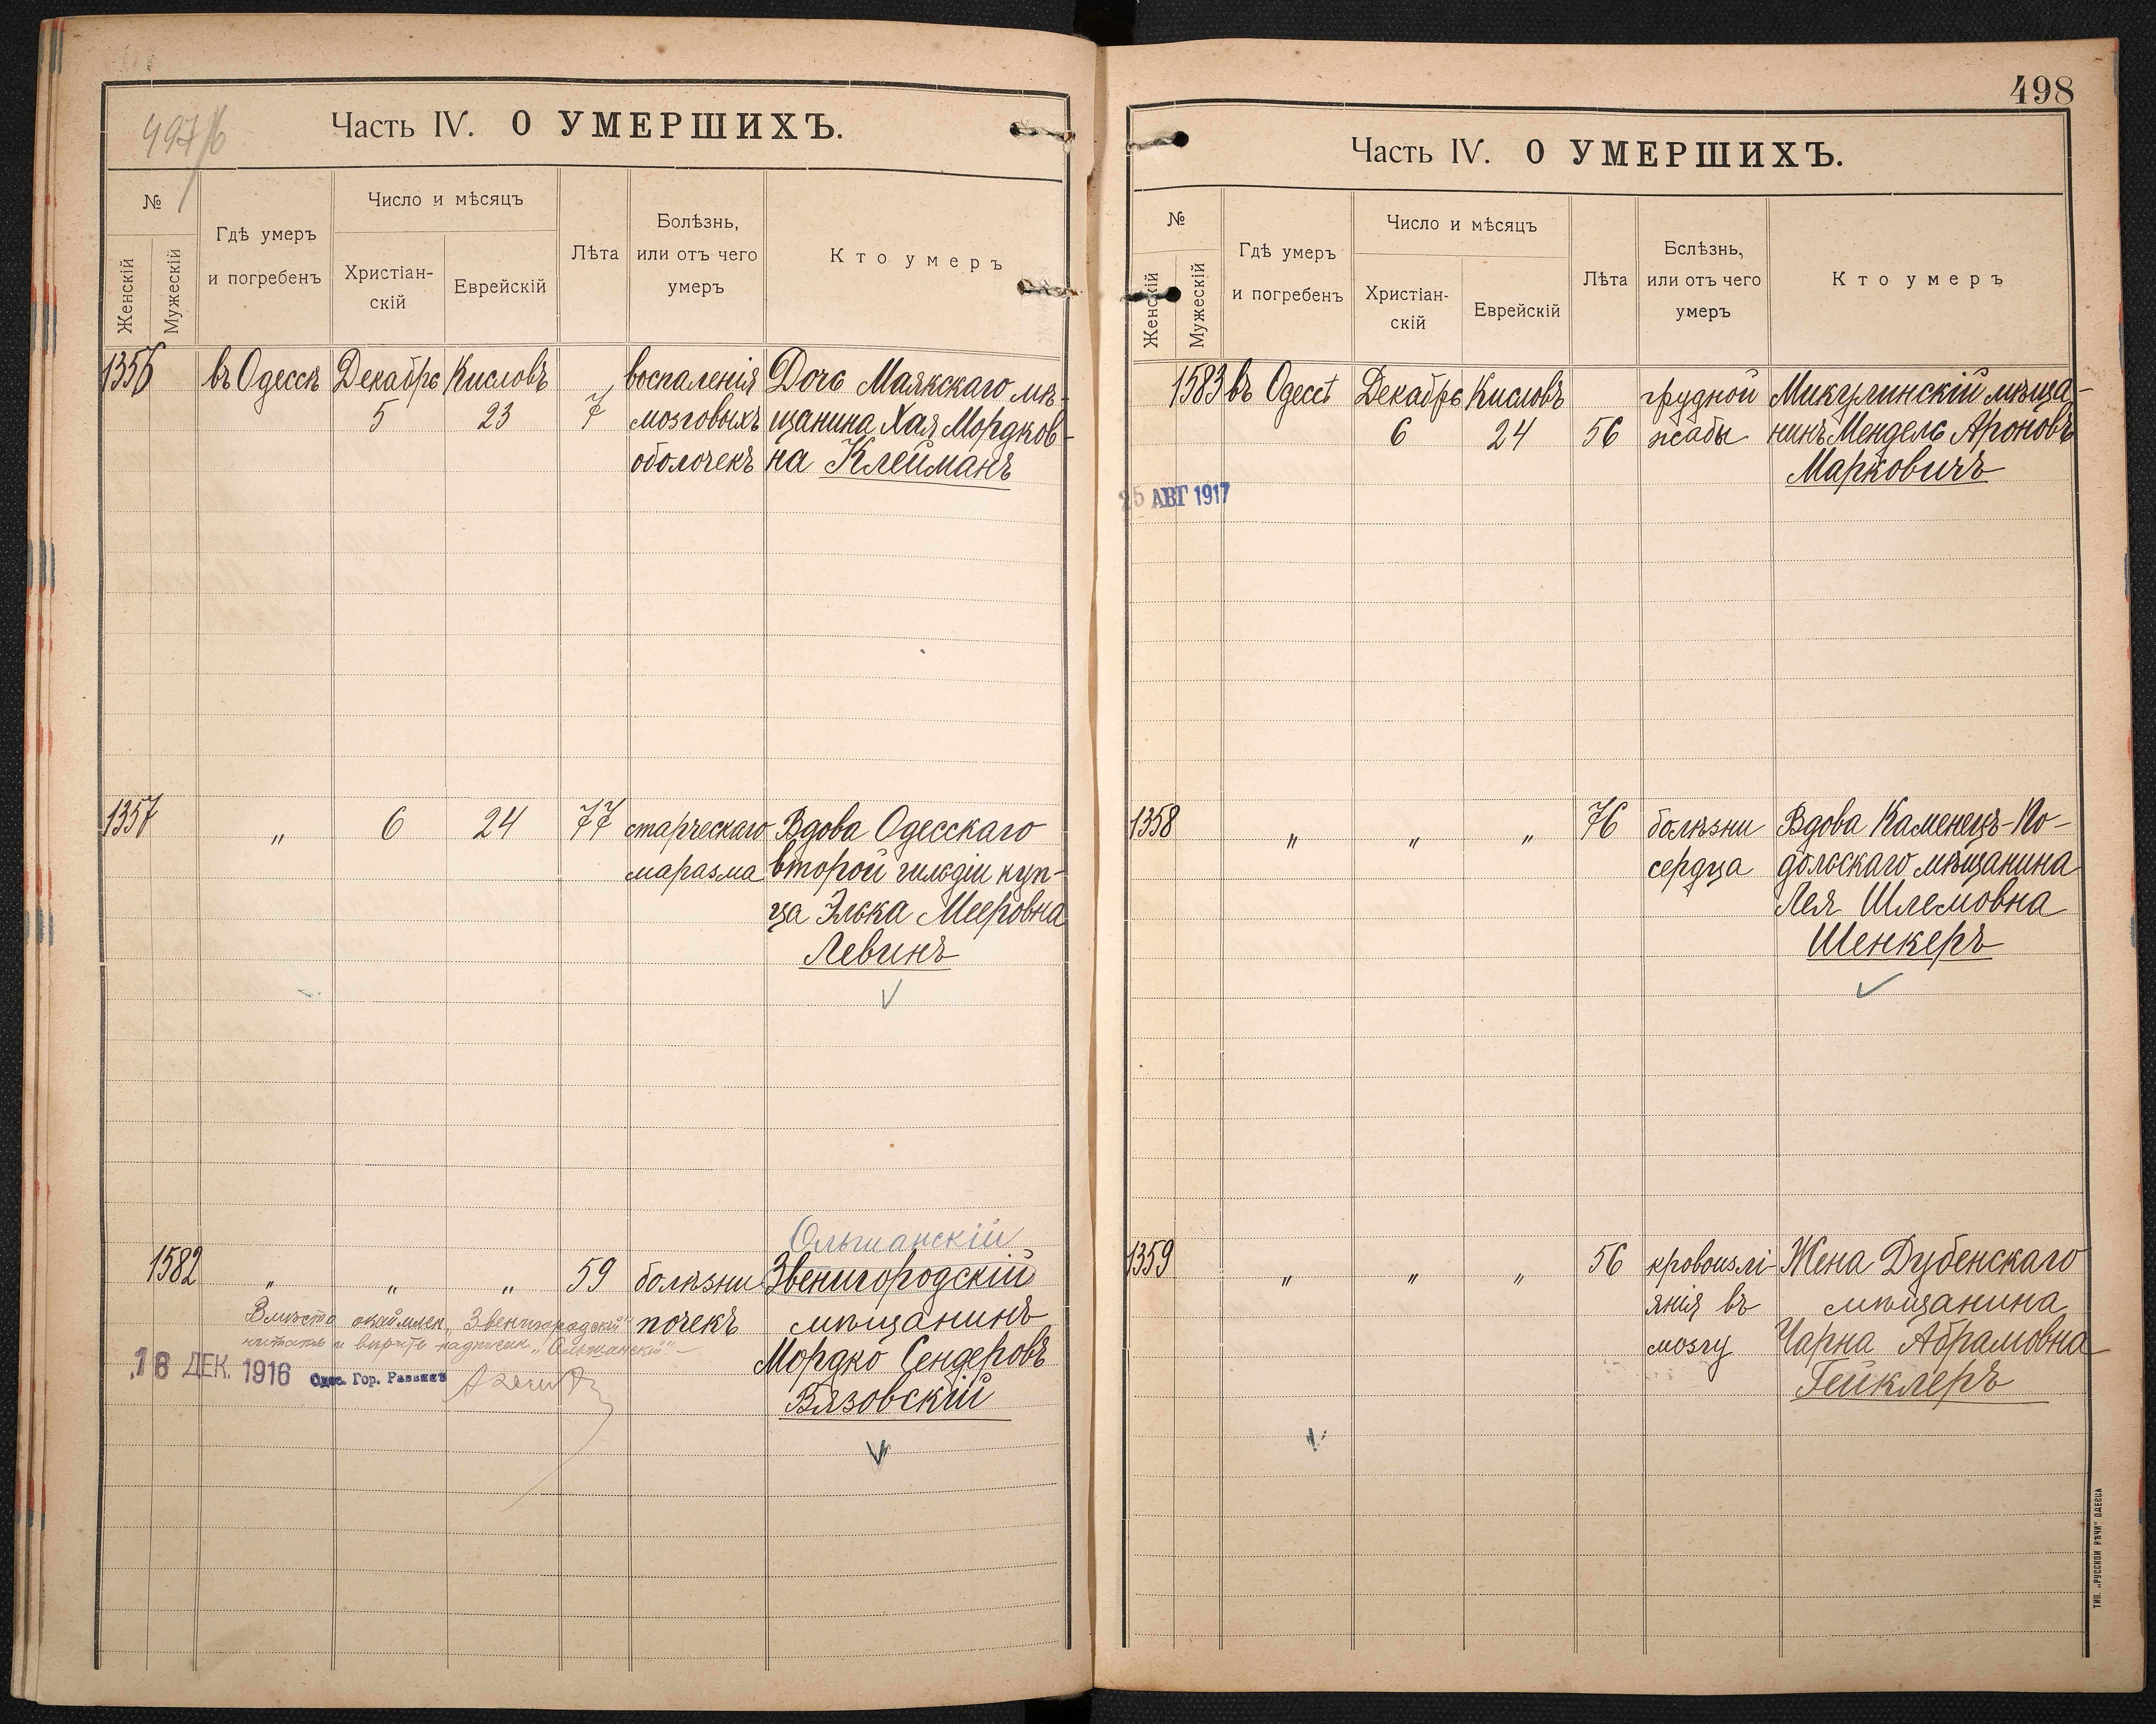 Часть IV. О УМЕРШИХЪ.
№
Женскій
Мужескій
Гдѣ умеръ
и погребенъ
Число и мѣсяцъ
Христіан-
скій
Еврейскій
Лѣта
Болѣзнь,
или отъ чего
умеръ
Кто умеръ
1356 въ Одессѣ Декабрь Кисловъ воспаленія Дочь Маякскаго мѣ-
5 23 7 мозговыхъ щанина Хая Мордков-
оболочекъ на Клейманъ
1357 „ 6 24 77 старческаго Вдова Одесскаго
маразма второй гильдіи куп-
ца Элька Мееровна
Левинъ
Ольшанскій
1582 „ „ „ 59 болѣзни Звенигородскій
почекъ мѣщанинъ
Мордко Сендеровъ
Вязовскій
Вмѣсто „Звенигородскій"
читать и вѣрить надписан. „Ольшанскій"
16 ДЕК. 1916 Одес. Гор. Раввинъ
498
Часть IV. О УМЕРШИХЪ.
№
Женскій
Мужескій
Гдѣ умеръ
и погребенъ
Число и мѣсяцъ
Христіан-
скій
Еврейскій
Лѣта
Бслѣзнь,
или отъ чего
умеръ
Кто умеръ
1583 въ Одессѣ Декабрь Кисловъ грудной Микулинскій мѣща-
6 24 56 жабы нинъ Мендель Ароновъ
Марковичъ
25 АВГ 1917
1358 „ „ „ 76 болѣзни Вдова Каменецъ-По-
сердца дольскаго мѣщанина
Лея Шлемовна
Шенкеръ
1359 „ „ „ 56 кровоизлі- Жена Дубенскаго
янія въ мѣщанина
мозгу Чарна Абрамовна
Гейклеръ
ТИП. „РУССКОЙ РѢЧИ" ОДЕССА